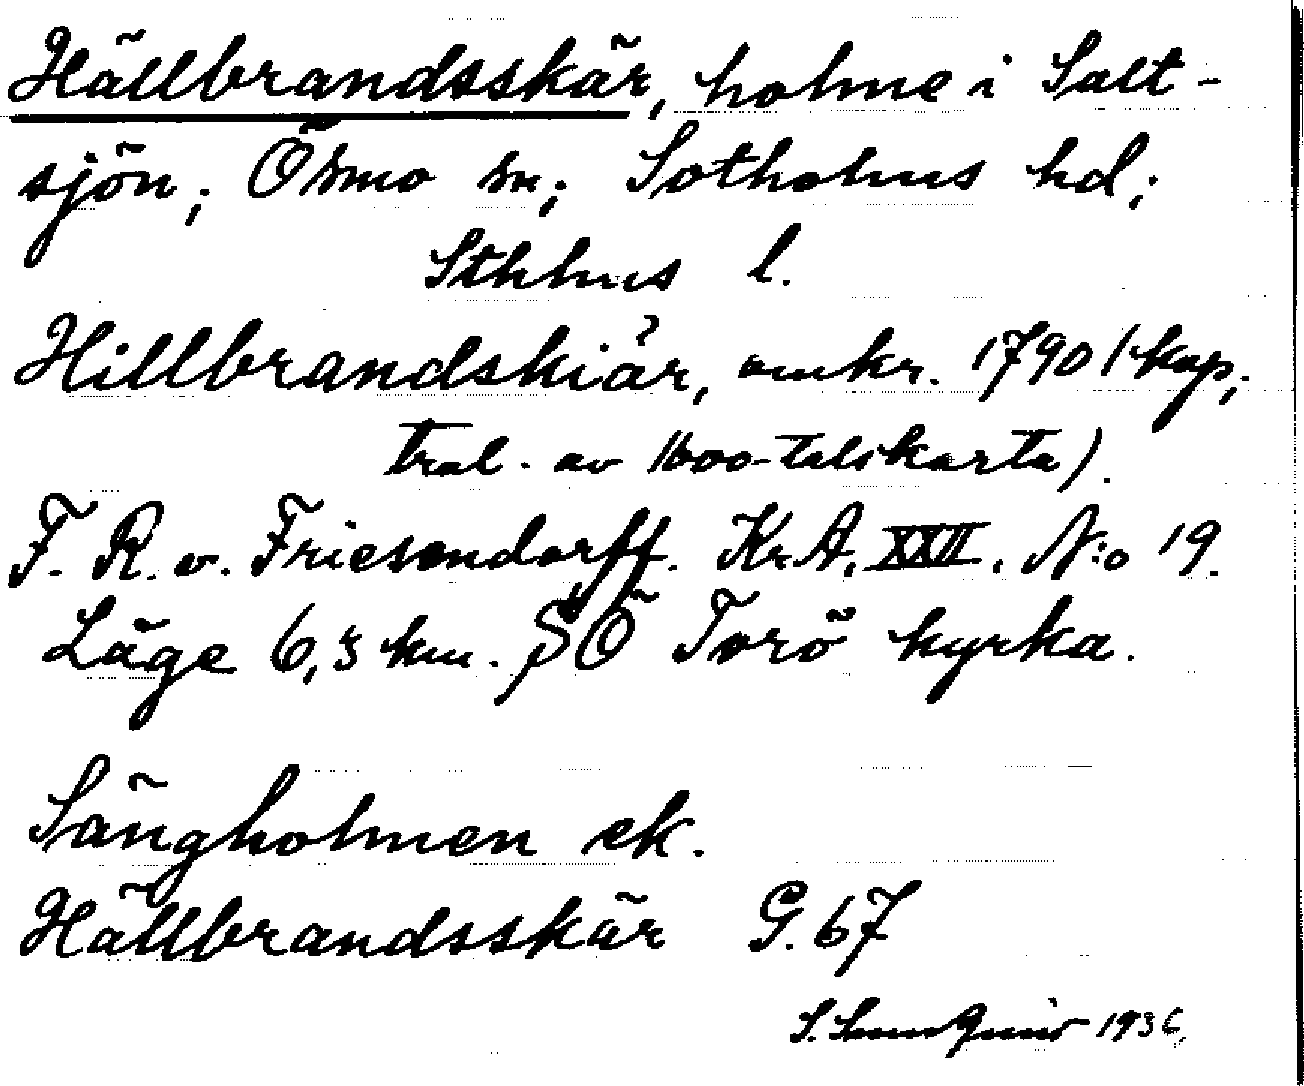 Hällbrandsskär, holme i Salt-
sjön; Ösmo sn; Sotholms hd;
Sthlms l.
Hillbrandskiär, omkr. 1790 (kop,
tral. av 1600-talskarta).
F. R. v. Friesendorff. Kr.A. XXII. N:o 19.
Läge 6,3 km. SÖ Torö kyrka.
Sängholmen ek.
Hällbrandsskär G. 67
S. 1936